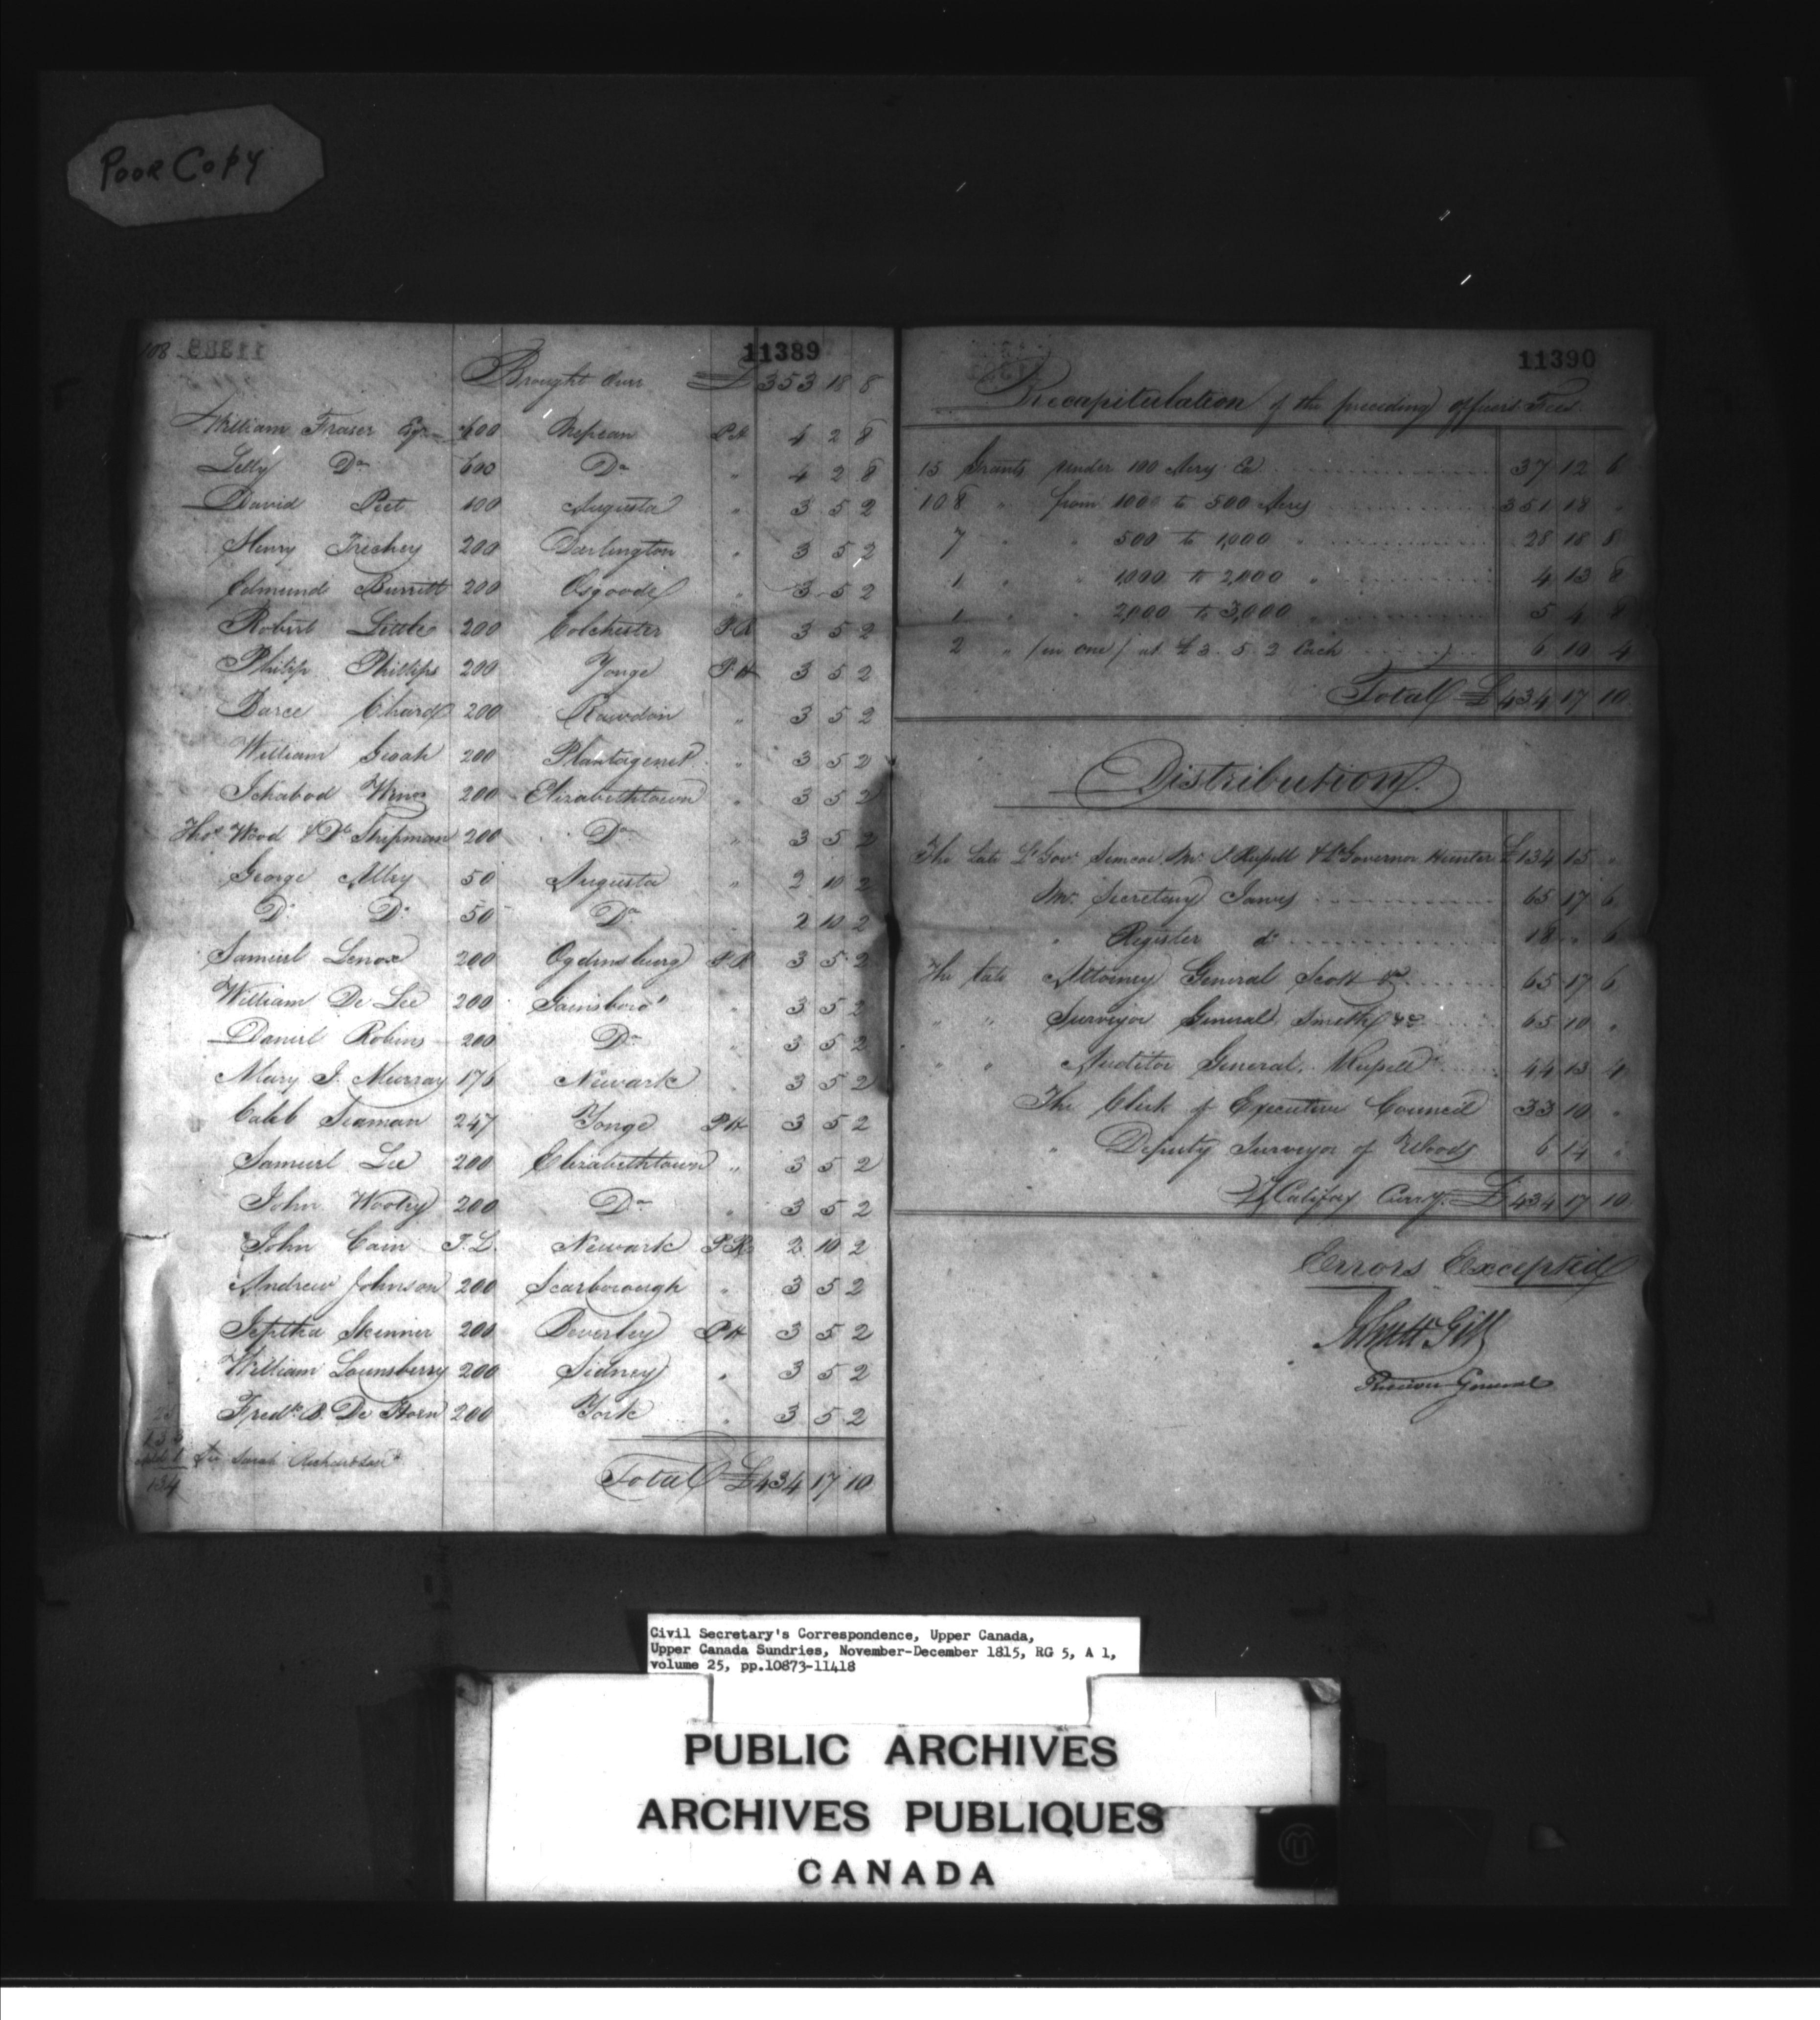 Poor Copy
108
11389
Brought Over £ 353 18 8
William Fraser Esqr 600 Nepean PH 4 2 8
Letty Do 600 Do " 4 2 8
David Peet 400 Augusta " 3 5 2
Henry Trickey 200 Darlington " 3 5 2
Edmund Burritt 200 Osgoode " 3 5 2
Robert Little 200 Colchester PR 3 5 2
Philip Phillips 200 Yonge PH 3 5 2
Barce Chard 200 Rawdon " 3 5 2
William 200 Plantagenet " 3 5 2
Ichabod 200 Elizabethtown " 3 5 2
Thos Wood & Shipman 200 Do " 3 5 2
George 50 Augusta " 2 10 2
Do Do 50 Do 2 10 2
Samuel Lenox 200 Ogdensburg PR 3 5 2
William De Lee 200 Gainsboro' " 3 5 2
Daniel Robins 200 Do " 3 5 2
Mary J. Murray 176 Newark " 3 5 2
Caleb Seaman 247 Yonge PH 3 5 2
Samuel Lee 200 Elizabethtown " 3 5 2
John 200 Do " 3 5 2
John Cain T.L. Newark PR 2 10 2
Andrew Johnson 200 Scarborough " 3 5 2
Jeptha Skinner 200 Beverley PH 3 5 2
William Lounsberry 200 Sidney " 3 5 2
Fredk B. De Hoen 200 York " 3 5 2
Sarah Richardson
134
Total £ 434 17 10
11390
Recapitulation of the preceding officers Fees.
15 Grants under 100 Acres Ea 37 12 6
108 " from 1000 to 500 Acres 351 18 "
7 " " 500 to 1,000 " 28 18 8
1 " " 1,000 to 2,000 " 4 13 8
1 " " 2,000 to 3,000 " 5 4 8
2 " (in one) at £3. 5. 2 Each 6 10 4
Total £ 434 17 10
Distribution.
The Late Lt Govr Simcoe, Mr P. Russell & Lt Governor Hunter £ 134 15 "
Mr Secretary Jarvis 65 17 6
" Register do 18 " 6
The Late Attorney General Scott &c. 65 17 6
" " Surveyor General Smith &c 65 10 "
" " Auditor General, Russell 44 13 4
The Clerk of Executive Council 33 10 "
" Deputy Surveyor of Woods 6 14 "
Halifax Curry. £ 434 17 10
Errors Excepted
General
Civil Secretary's Correspondence, Upper Canada,
Upper Canada Sundries, November-December 1815, RG 5, A 1,
volume 25, pp.10873-11418
PUBLIC ARCHIVES
ARCHIVES PUBLIQUES
CANADA